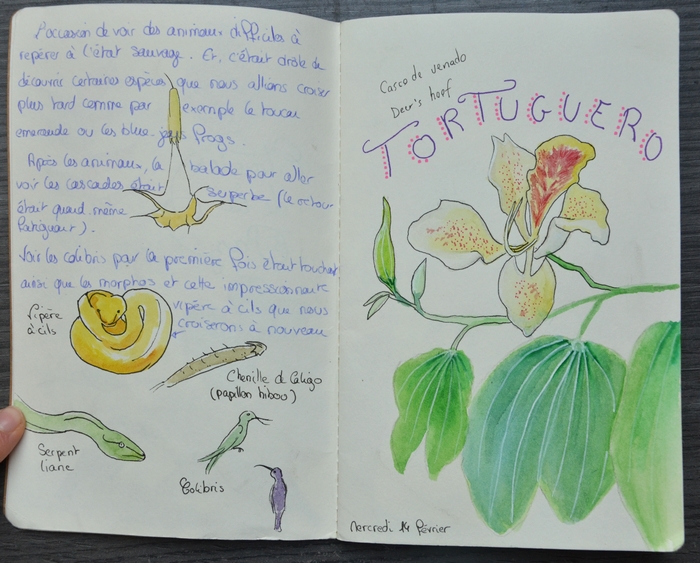 l'occasion de voir des animaux difficiles à
repérer à l'état sauvage. Et, c'était drôle de
découvrir certaines espèces que nous allions croiser
plus tard comme par exemple le toucan
emeraude ou les blue-jeans frogs.
Après les animaux, la balade pour aller
voir les cascades était superbe (le retour
était quand même
fatiguant).
Voir les colibris pour la première fois était touchant
ainsi que les morphos et cette impressionnante
vipère à cils que nous
croiserons à nouveau
Vipère
à cils
Chenille de Caligo
(papillon hibou)
Serpent
liane
Colibris
Casco de venado
Deer's hoof
TORTUGUERO
Mercredi 14 février